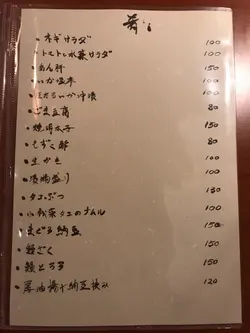 ・ネギサラダ 100
・トマトと水菜サラダ 100
・あん肝 150
・いか塩辛 100
・ほたるいか沖漬 100
・ごま豆腐 80
・焼明太子 150
・もずく酢 80
・生かき 100
・漬物盛り 100
・タコぶつ 130
・小松菜クニのナムル 100
・まぐろ納豆 150
・鰻ざく 150
・鰻とろろ 150
・厚油揚げ納豆挟み 120